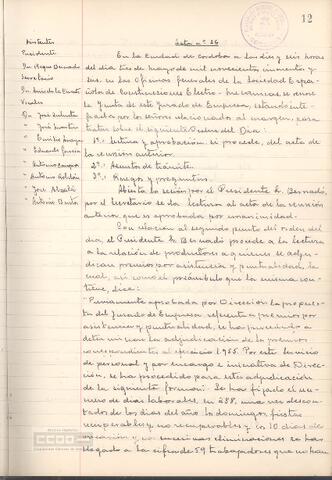 12
Asistentes
Acta nº 26
Presidente
Secretario
Vocales
En la Ciudad de Córdoba a las diez y seis horas
del día tres de mayo de mil novecientos cincuenta y
seis, en las Oficinas Generales de la Sociedad Espa-
ñola de Construcciones Electro-Mecánicas, se reune
la Junta de este Jurado de Empresa, estando inte-
grado por los señores relacionados al margen, para
tratar sobre el siguiente Orden del Día:
1º. Lectura y aprobación, si procede, del acta de
la reunión anterior.
2º. Asuntos de trámite.
3º. Ruegos y preguntas.
Abierta la sesión por el Presidente Sr. Bernadó,
por el Secretario se da lectura al acta de la reunión
anterior, que es aprobada por unanimidad.
Con relación al segundo punto del orden del
día, el Presidente Sr. Bernadó procede a la lectura
a la relación de productores a quienes se adju-
dican premios por asistencia y puntualidad, la
cual, así como el preámbulo que la misma con-
tiene, dice:
"Previamente aprobada por Dirección la propues-
ta del Jurado de Empresa referente a premios por
asistencia y puntualidad, se ha procedido a
determinar la adjudicación de los premios
correspondientes al ejercicio 1.955. Por este servicio
de personal y por encargo e iniciativa de Direc-
ción, se ha procedido para esta adjudicación
de la siguiente forma: Se ha fijado el nú-
mero de días laborales, en 288, una vez descon-
tados de los días del año los domingos, fiestas
recuperables y no recuperables y los 10 días de
vacación y en sucesivas eliminaciones se ha
llegado a la cifra de 59 trabajadores que no han